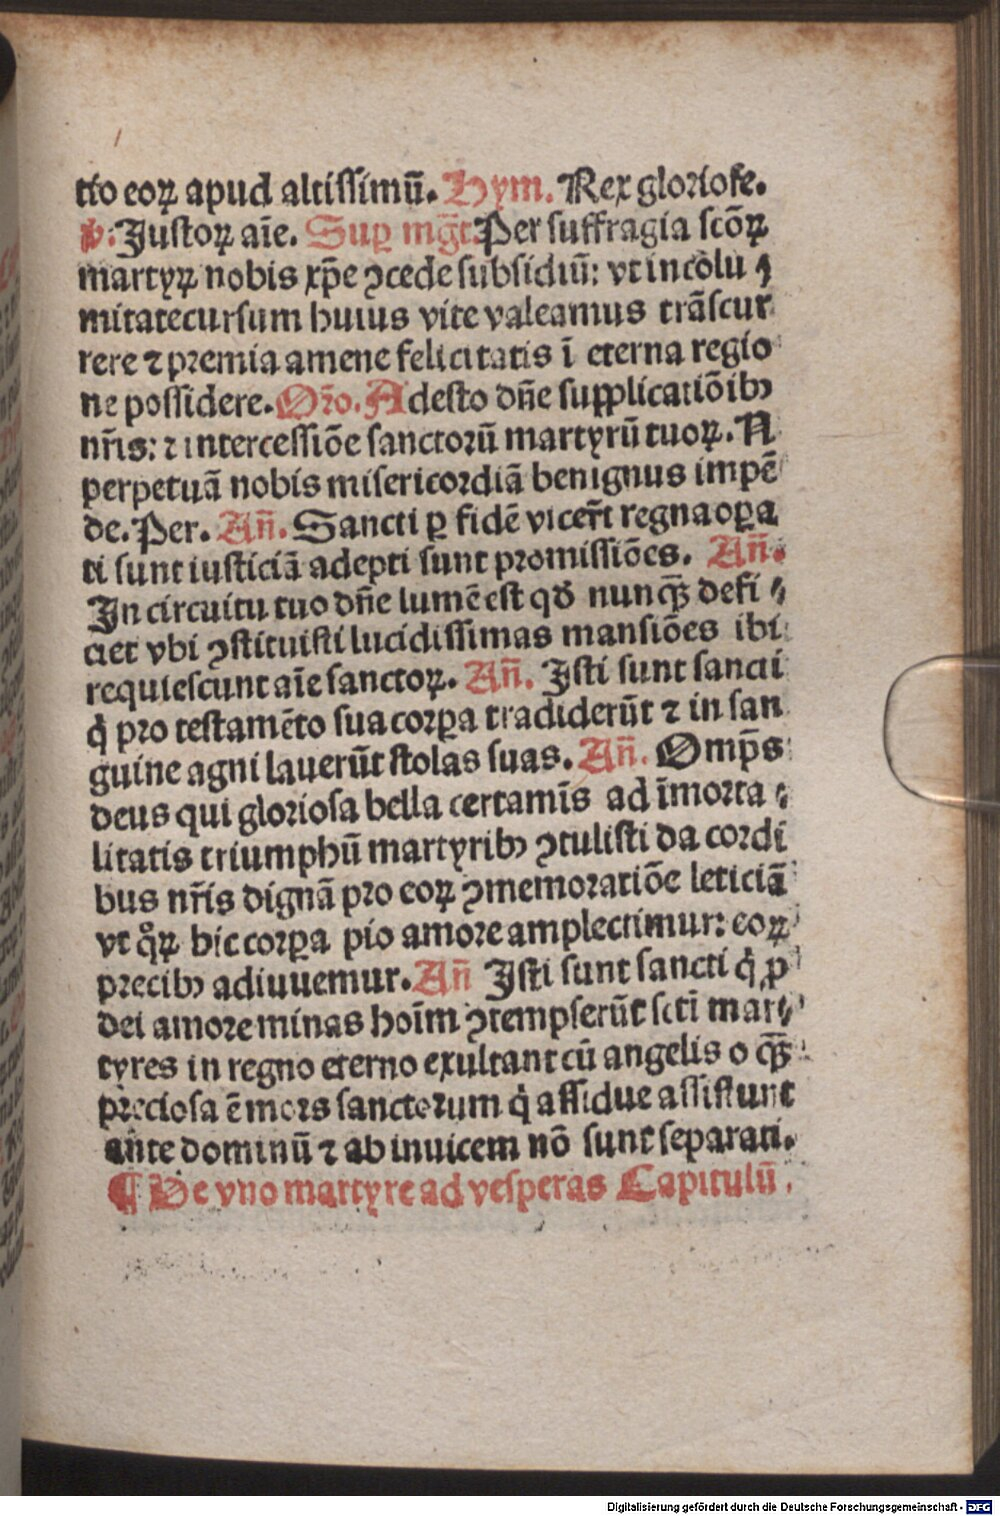 tio eoꝝ apud altissimū. Hym. Rex gloriose.
℣. Justoꝝ aīe. Suꝑ mg̅t. Per suffragia scōꝝ
martyꝝ nobis xp̄e ꝯcede subsidiū: vt incolu⸗
mitate cursum huius vite valeamus trāscur
rere ⁊ premia amene felicitatis ī eterna regio
ne possidere. Oro̅. Adesto dn̄e supplicatiōibꝰ
nr̄is: ⁊ intercessiōe sanctorū martyrū tuoꝝ. N
perpetuā nobis misericordiā benignus impē
de. Per. An̄. Sancti ꝑ fidē vicer̄t regna oꝑa
ti sunt iusticiā adepti sunt promissiōes. An̄.
In circuitu tuo dn̄e lumē est qđ nunqꝫ defi⸗
ciet vbi ꝯstituisti lucidissimas mansiōes ibi
requiescunt aīe sanctoꝝ. An̄. Isti sunt sancti
q̇ pro testamēto sua corꝑa tradiderūt ⁊ in san
guine agni lauerūt stolas suas. An̄. Omp̄s
deus qui gloriosa bella certamīs ad īmorta⸗
litatis triumphū martyribꝰ ꝯtulisti da cordi
bus nr̄is dignā pro eoꝝ ꝯmemoratiōe leticiā
vt qͦꝝ hic corꝑa pio amore amplectimur: eoꝝ
precibꝰ adiuuemur. An̄ Isti sunt sancti q̇ ꝓ
dei amore minas hoīm ꝯtempserūt scti mar⸗
tyres in regno eterno exultant cū angelis o qꝫ̄
preciosa ē mors sanctorum q̇ assidue assistunt
ante dominū ⁊ ab inuicem nō sunt separati.
¶ De vno martyre ad vesperas Capitulū.
Digitalisierung gefördert durch die Deutsche Forschungsgemeinschaft - DFG